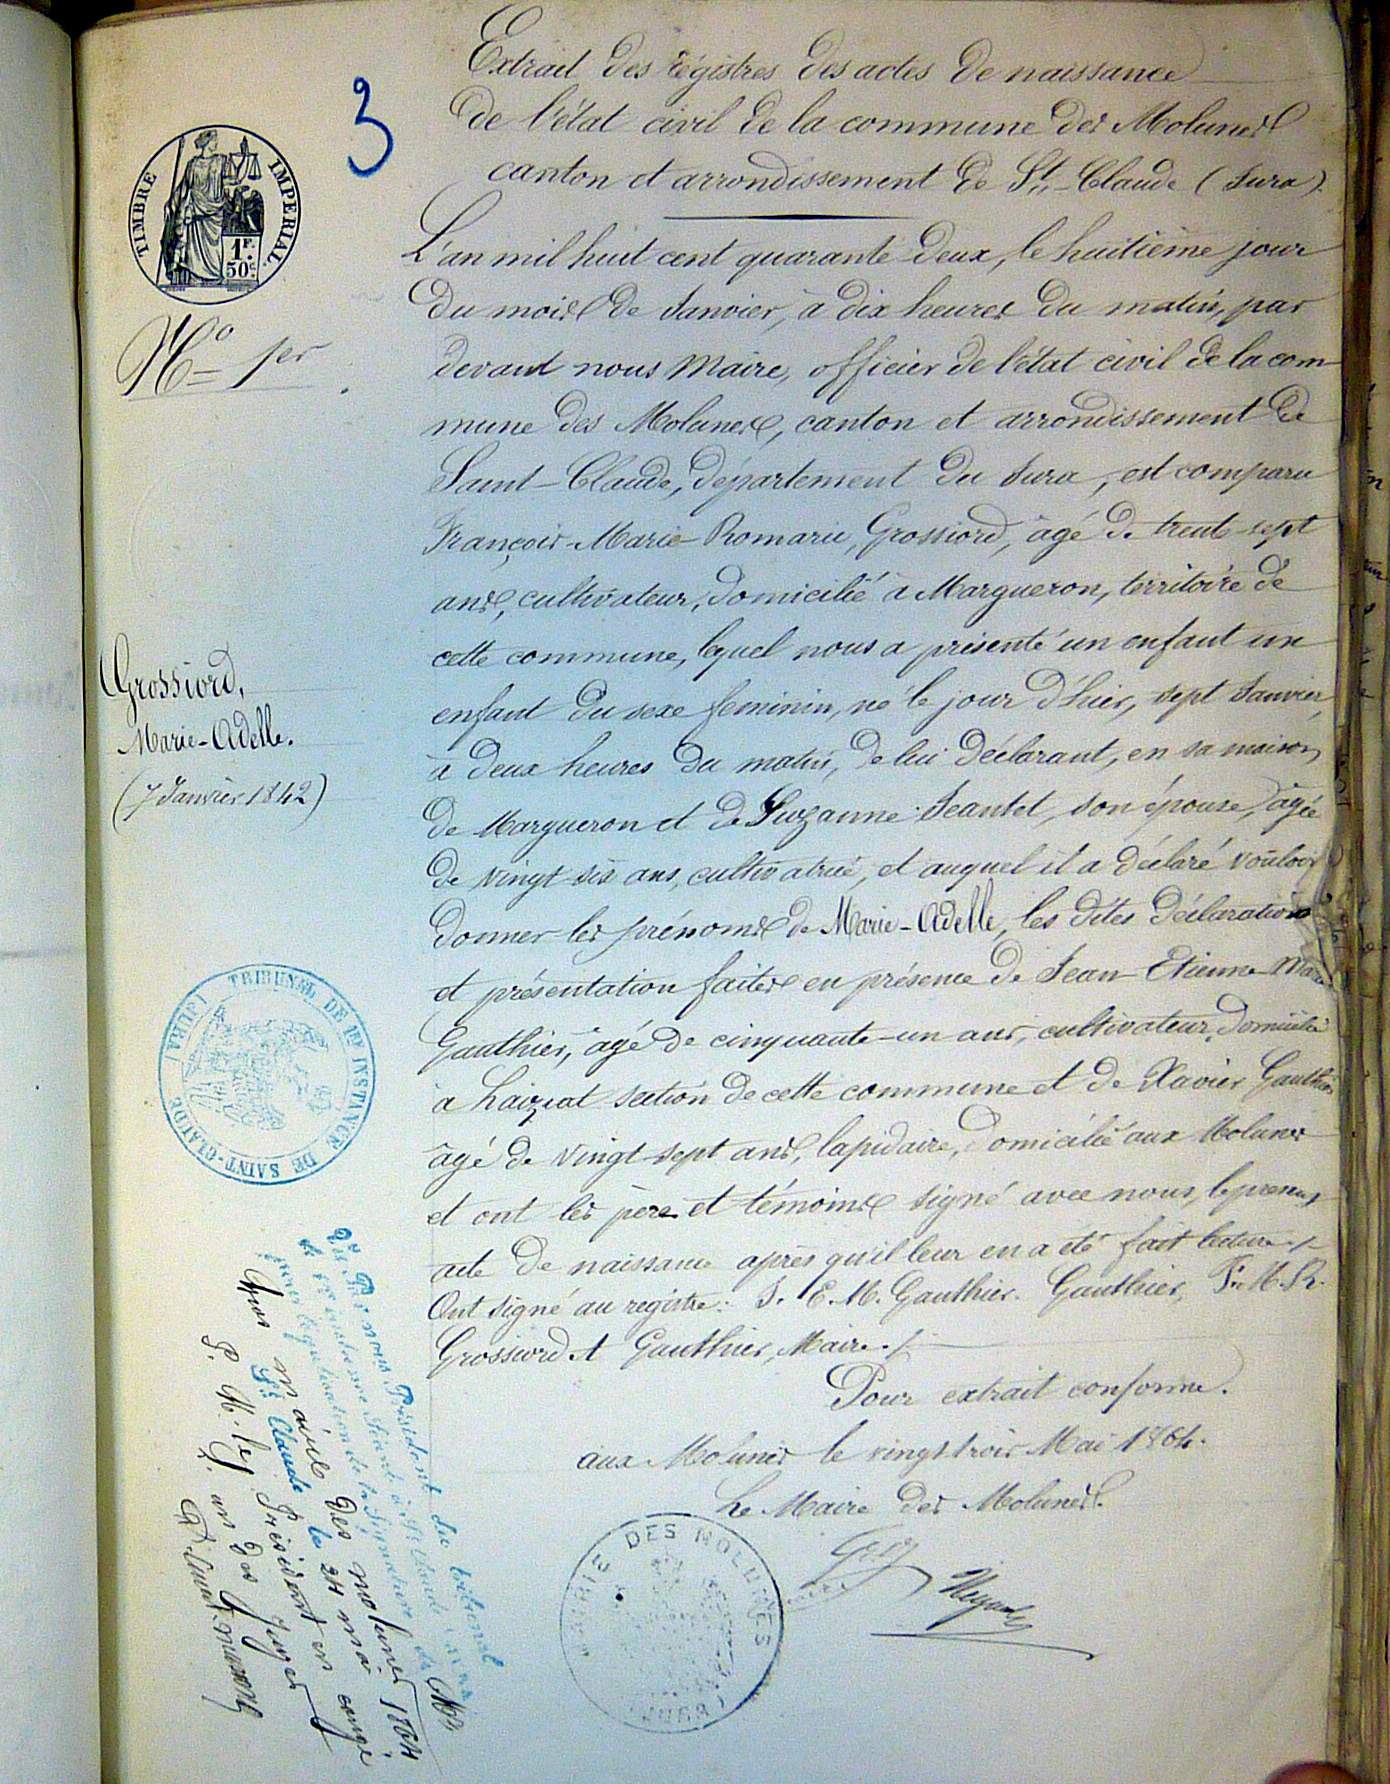 3
Extrait des régistres des actes de naissance
de l'état civil de la commune des Molunes
canton et arrondissement de St.-Claude (Jura).
TIMBRE IMPERIAL
1F.
50c.
No 1er
L'an mil huit cent quarante-deux, le huitième jour
du mois de Janvier, à dix heures du matin, par
devant nous Maire, officier de l'état civil de la com
mune des Molunes, canton et arrondissement de
Saint-Claude, département du Jura, est comparu
François-Marie-Romarie, Grossiord, âgé de trente-sept
ans, cultivateur, domicilié à Margueron, territoire de
cette commune, lequel nous a présenté un enfant un
enfant du sexe féminin, né le jour d'hier, sept Janvier,
à deux heures du matin, de lui déclarant, en sa maison
de Margueron et de Suzanne Jeantet, son épouse, âgée
de vingt six ans, cultivatrice, et auquel il a déclaré vouloir
donner les prénoms de Marie-Adelle, les dites déclaration
et présentation faites en présence de Jean-Etienne-Marie
Gauthier, âgé de cinquante-un ans, cultivateur, domicilié
à Laiziat section de cette commune et de Xavier Gauthier
âgé de vingt-sept ans, lapidaire, domicilié aux Molunes
et ont les père et témoins signé avec nous, le present
acte de naissance après qu'il leur en a été fait lecture./.
Ont signé au registre: J. E. M. Gauthier. Gauthier, F. M. R.
Grossiord et Gauthier, Maire./.
Pour extrait conforme.
aux Molunes le vingt trois Mai 1864.
Le Maire des Molunes.
Grossiord,
Marie-Adelle.
(7 Janvier 1842)
TRIBUNAL DE 1RE INSTANCE DE SAINT-CLAUDE (JURA)
MAIRIE DES MOLUNES (JURA)
Vu par nous Président du tribunal
de 1re instance séant à St Claude
pour légalisation de la signature de Mr
maire des molunes
St Claude le 24 mai 1864
P. M. le Président en congé
l'un des Juges